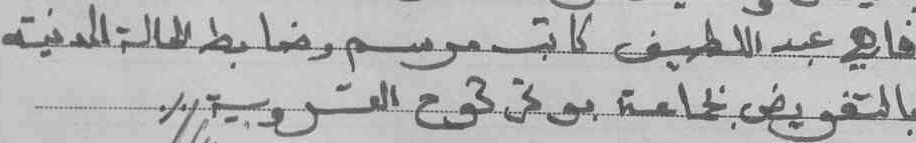 فاهي عبد اللطيف كاتب مرسم وضابط الحالة المدنية
بالتفويض بجماعة بوتخوح القروية